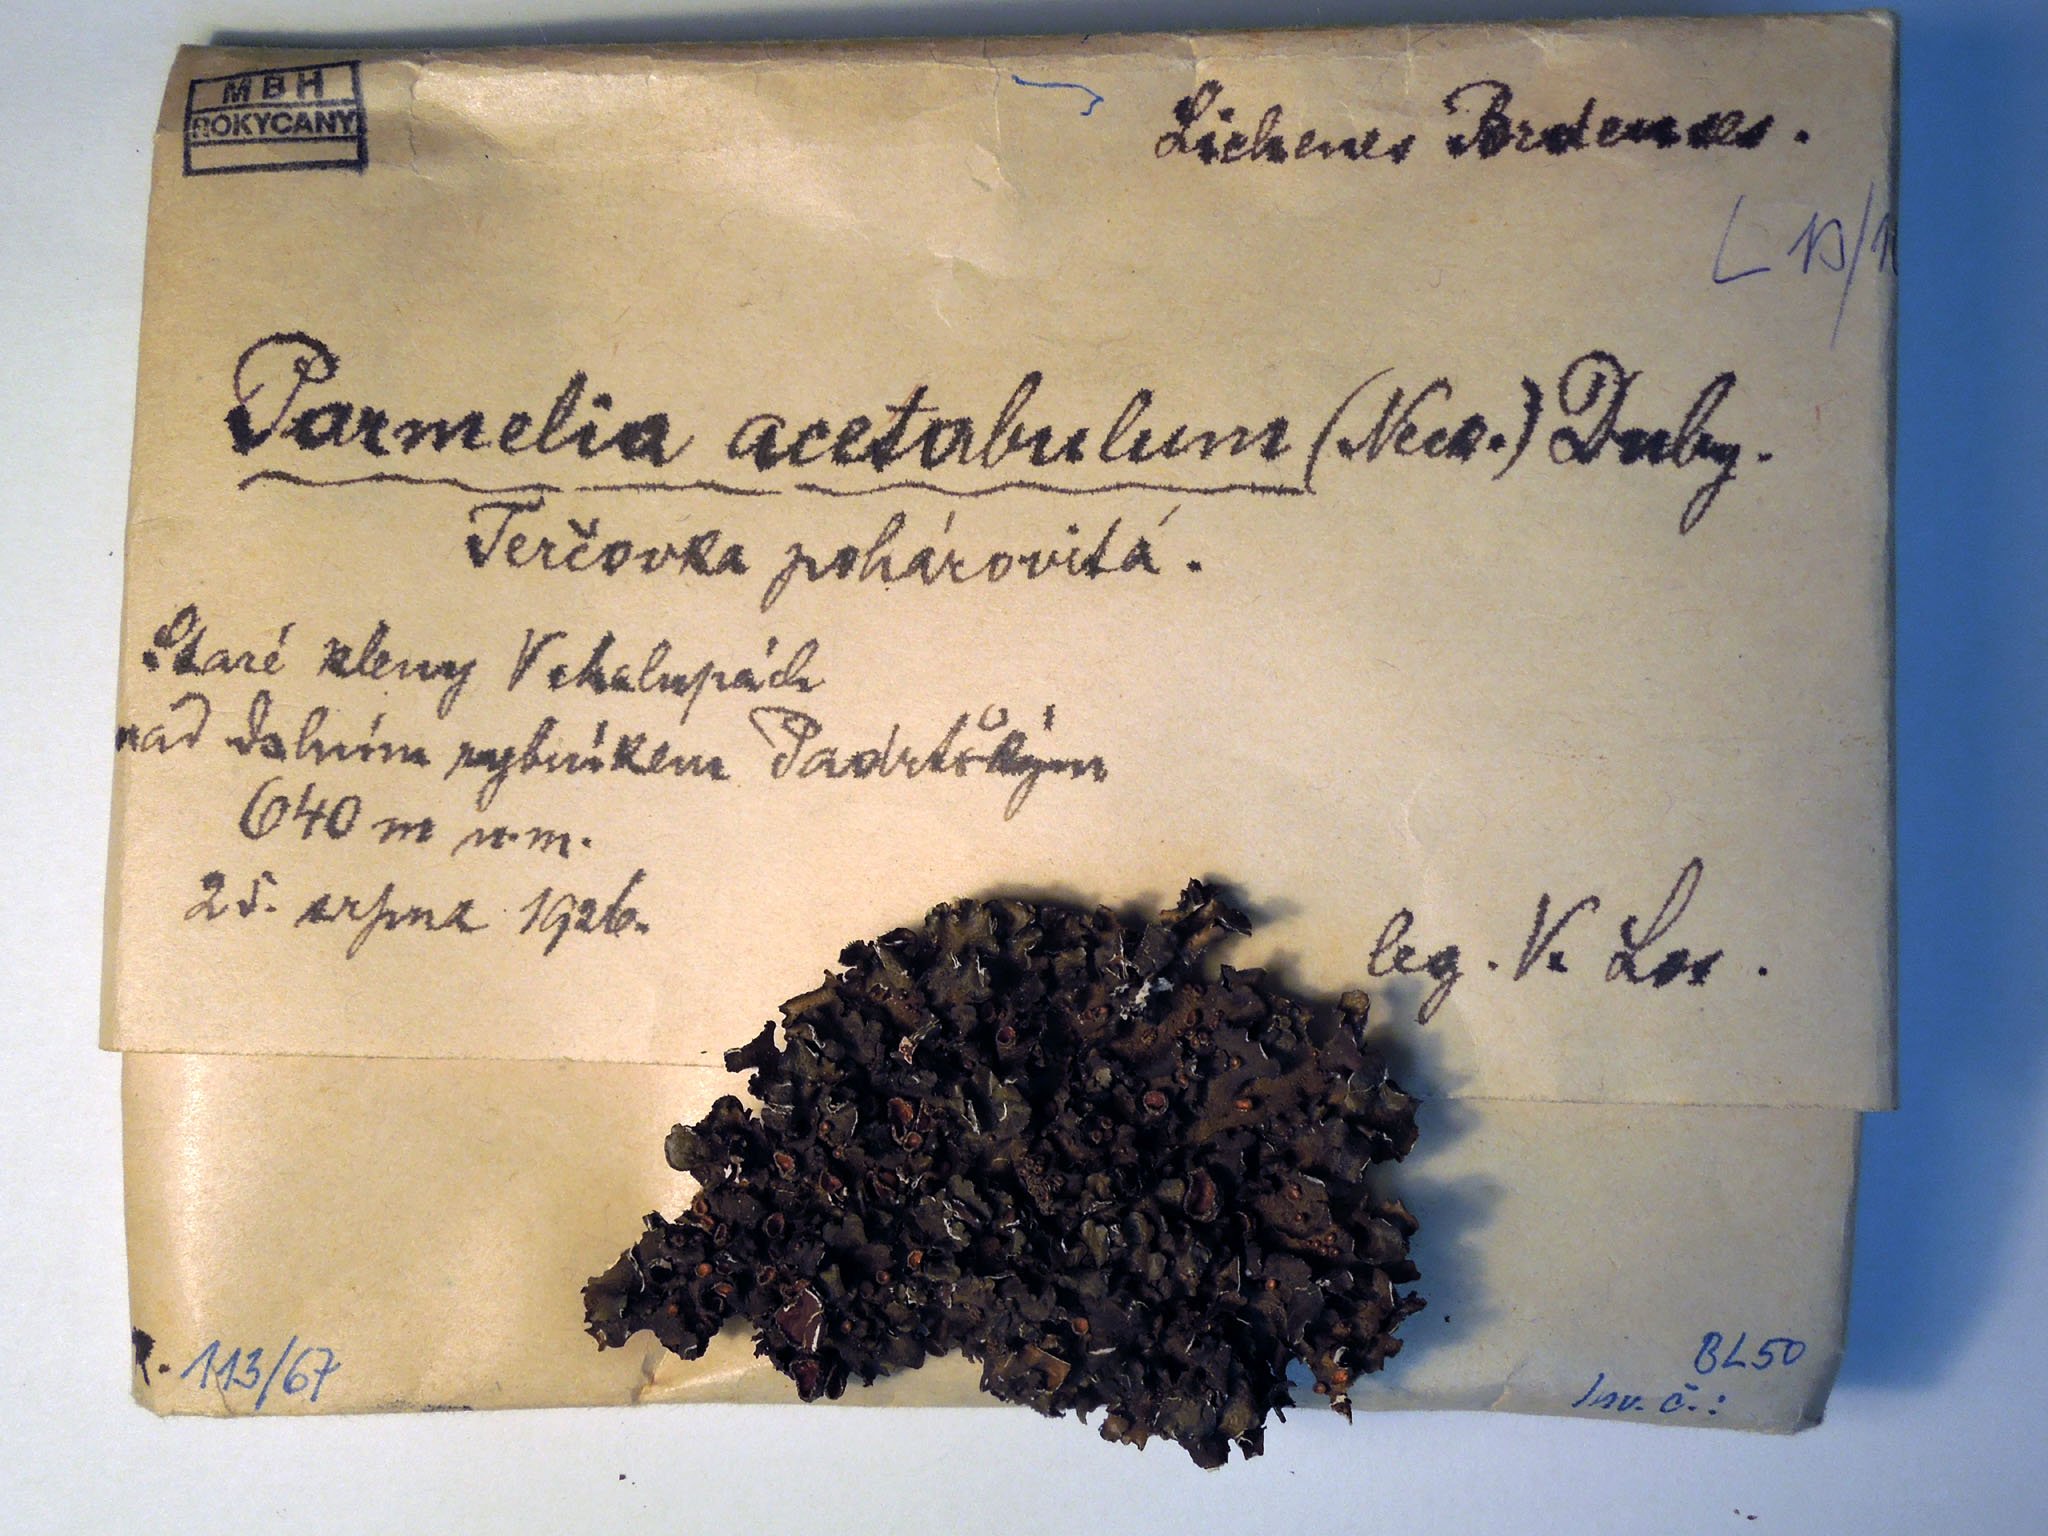 MBH
ROKYCANY
Lichenes Brdenses.
L 10/
Parmelia acetabulum (Neck.) Duby.
Terčovka pohárovitá.
Staré kleny V chalupách
nad dolním rybníkem Padrťským
640 m n.m.
25. srpna 1926.
leg. V. Los.
113/67
BL50
Inv. č.: